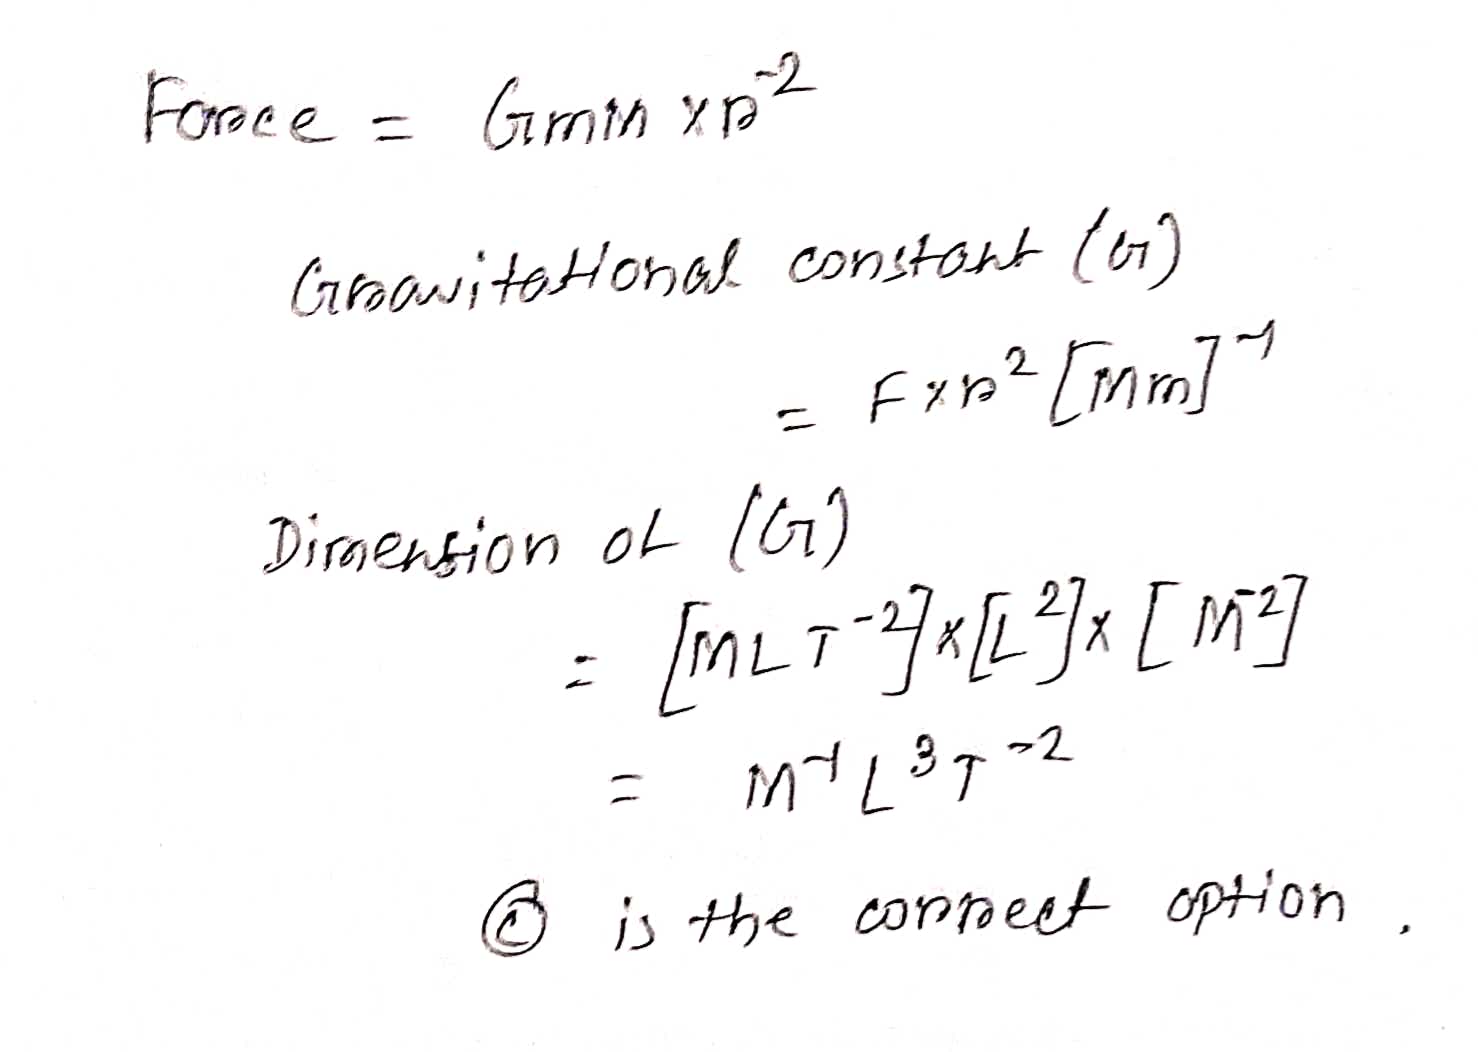 Force = GmM × r⁻²
Gravitational constant (G)
= F × r² [Mm]⁻¹
Dimension of (G)
= [MLT⁻²] × [L²] × [M⁻²]
= M⁻¹L³T⁻²
ⓒ is the correct option.